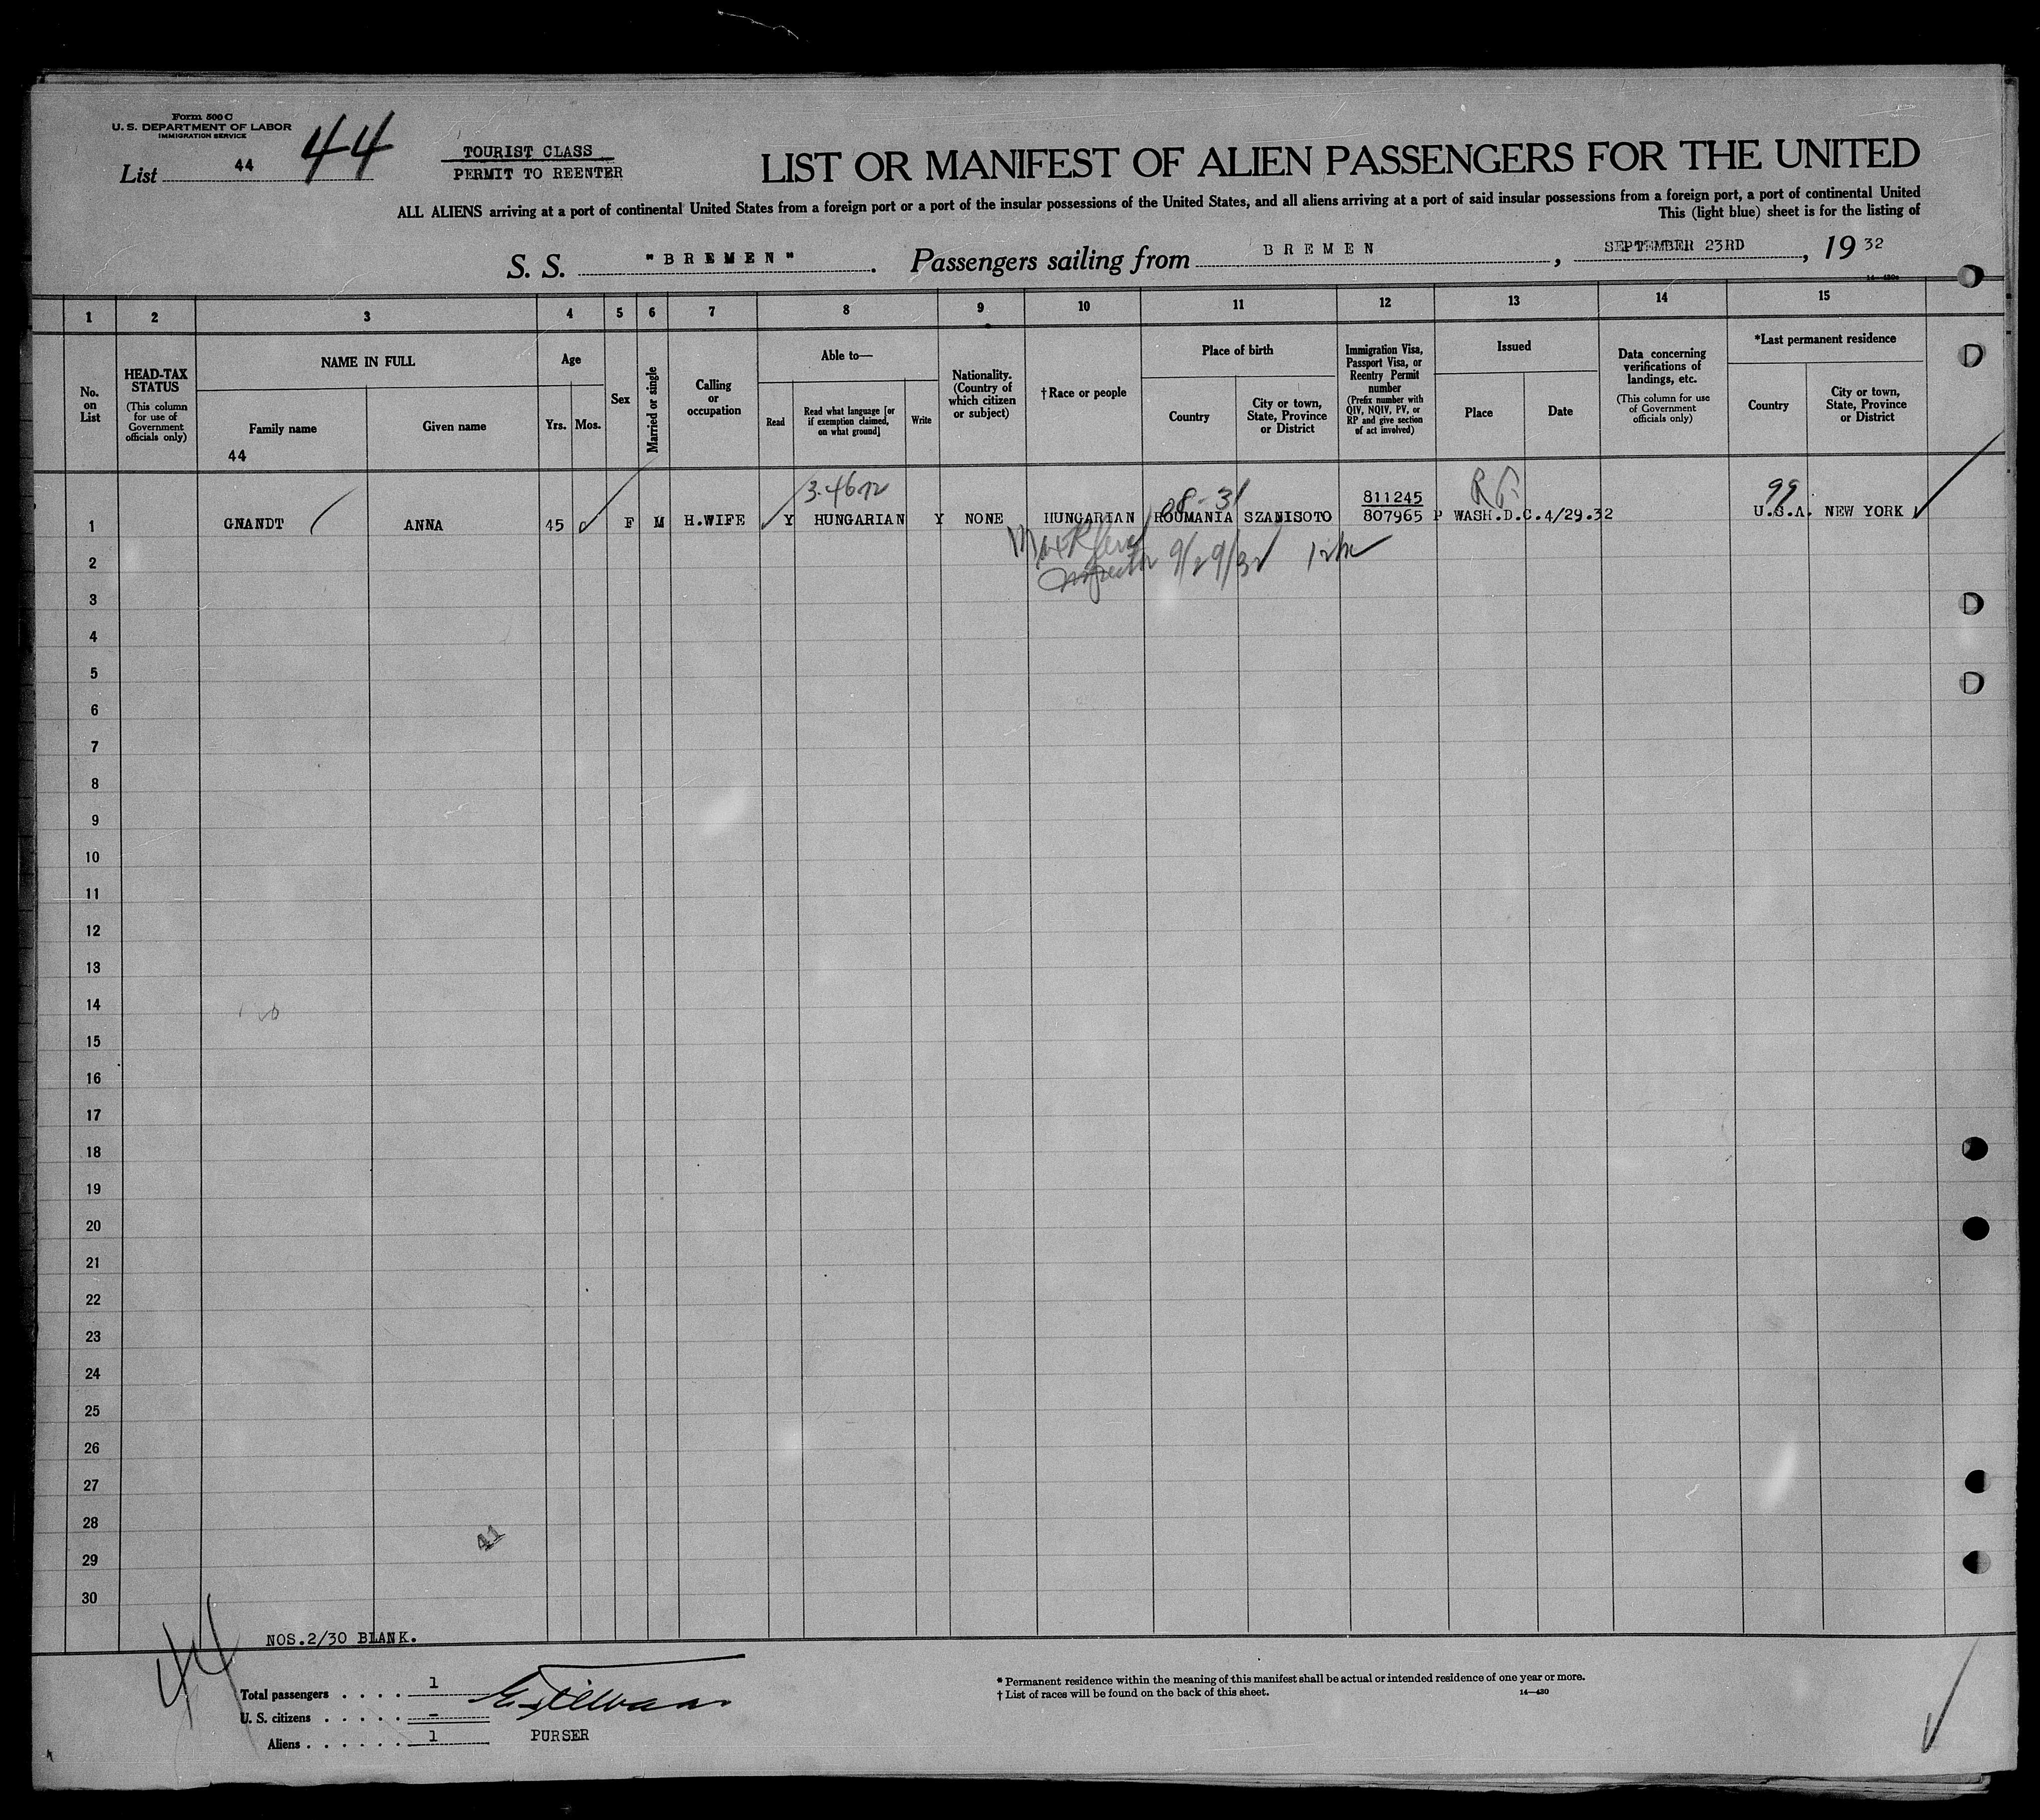 Form 500 C
U. S. DEPARTMENT OF LABOR
IMMIGRATION SERVICE
List 44
44
TOURIST CLASS
PERMIT TO REENTER
LIST OR MANIFEST OF ALIEN PASSENGERS FOR THE UNITED
ALL ALIENS arriving at a port of continental United States from a foreign port or a port of the insular possessions of the United States, and all aliens arriving at a port of said insular possessions from a foreign port, a port of continental United
This (light blue) sheet is for the listing of
S. S. "BREMEN". Passengers sailing from BREMEN, SEPTEMBER 23RD, 19 32
14—430a
1 2 3 4 5 6 7 8 9 10 11 12 13 14 15
No. on List
HEAD-TAX STATUS
(This column for use of Government officials only)
NAME IN FULL
Family name
Given name
44
Age
Yrs. Mos.
Sex
Married or single
Calling or occupation
Able to—
Read
Read what language [or if exemption claimed, on what ground]
Write
Nationality. (Country of which citizen or subject)
†Race or people
Place of birth
Country
City or town, State, Province or District
Immigration Visa, Passport Visa, or Reentry Permit number
(Prefix number with QIV, NQIV, PV, or RP and give section of act involved)
Issued
Place
Date
Data concerning verifications of landings, etc.
(This column for use of Government officials only)
*Last permanent residence
Country
City or town, State, Province or District
99
811245
1 GNANDT ANNA 45 F M H.WIFE Y HUNGARIAN Y NONE HUNGARIAN ROUMANIA SZANISOTO 807965 P WASH.D.C. 4/29.32 U.S.A. NEW YORK
Inspector 9/29/32
2
3
4
5
6
7
8
9
10
11
12
13
14
15
16
17
18
19
20
21
22
23
24
25
26
27
28
29
30
NOS.2/30 BLANK.
44
Total passengers . . . . 1
U. S. citizens . . . . . –
Aliens . . . . . . 1
PURSER
* Permanent residence within the meaning of this manifest shall be actual or intended residence of one year or more.
† List of races will be found on the back of this sheet.
14—430